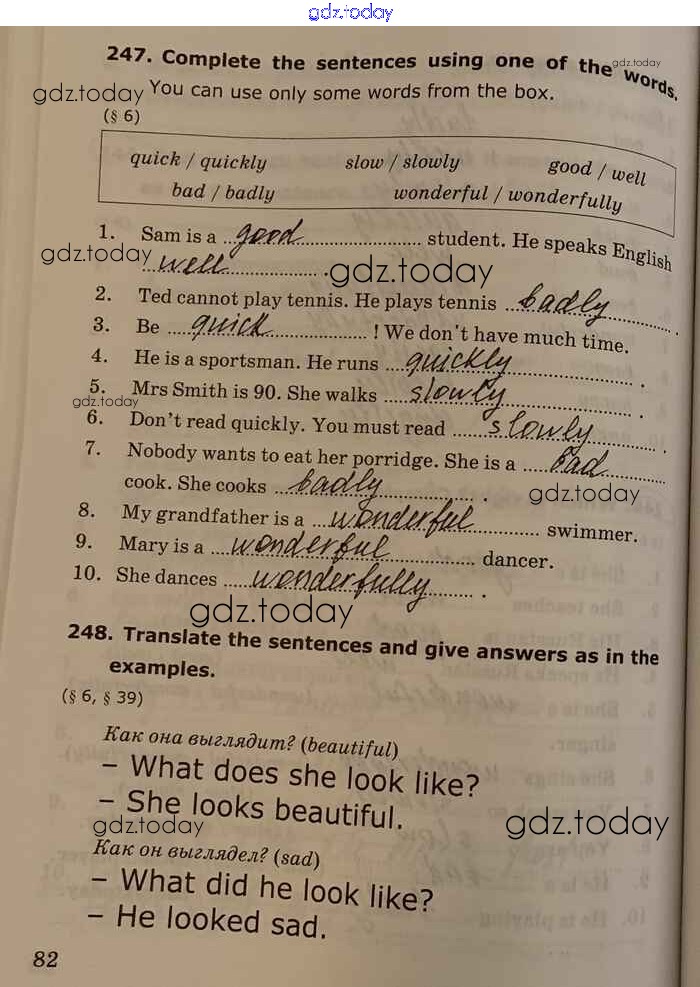 gdz.today
247. Complete the sentences using one of the words.
gdz.today
gdz.today
You can use only some words from the box.
(§ 6)
quick / quickly slow / slowly good / well
bad / badly wonderful / wonderfully
1. Sam is a ...good... student. He speaks English
gdz.today
...well... .
gdz.today
2. Ted cannot play tennis. He plays tennis ...badly... .
3. Be ...quick... ! We don't have much time.
4. He is a sportsman. He runs ...quickly... .
5. Mrs Smith is 90. She walks ...slowly... .
gdz.today
6. Don't read quickly. You must read ...slowly... .
7. Nobody wants to eat her porridge. She is a ...bad...
cook. She cooks ...badly... .
gdz.today
8. My grandfather is a ...wonderful... swimmer.
9. Mary is a ...wonderful... dancer.
10. She dances ...wonderfully... .
gdz.today
248. Translate the sentences and give answers as in the
examples.
(§ 6, § 39)
Как она выглядит? (beautiful)
– What does she look like?
– She looks beautiful.
gdz.today
gdz.today
Как он выглядел? (sad)
– What did he look like?
– He looked sad.
82